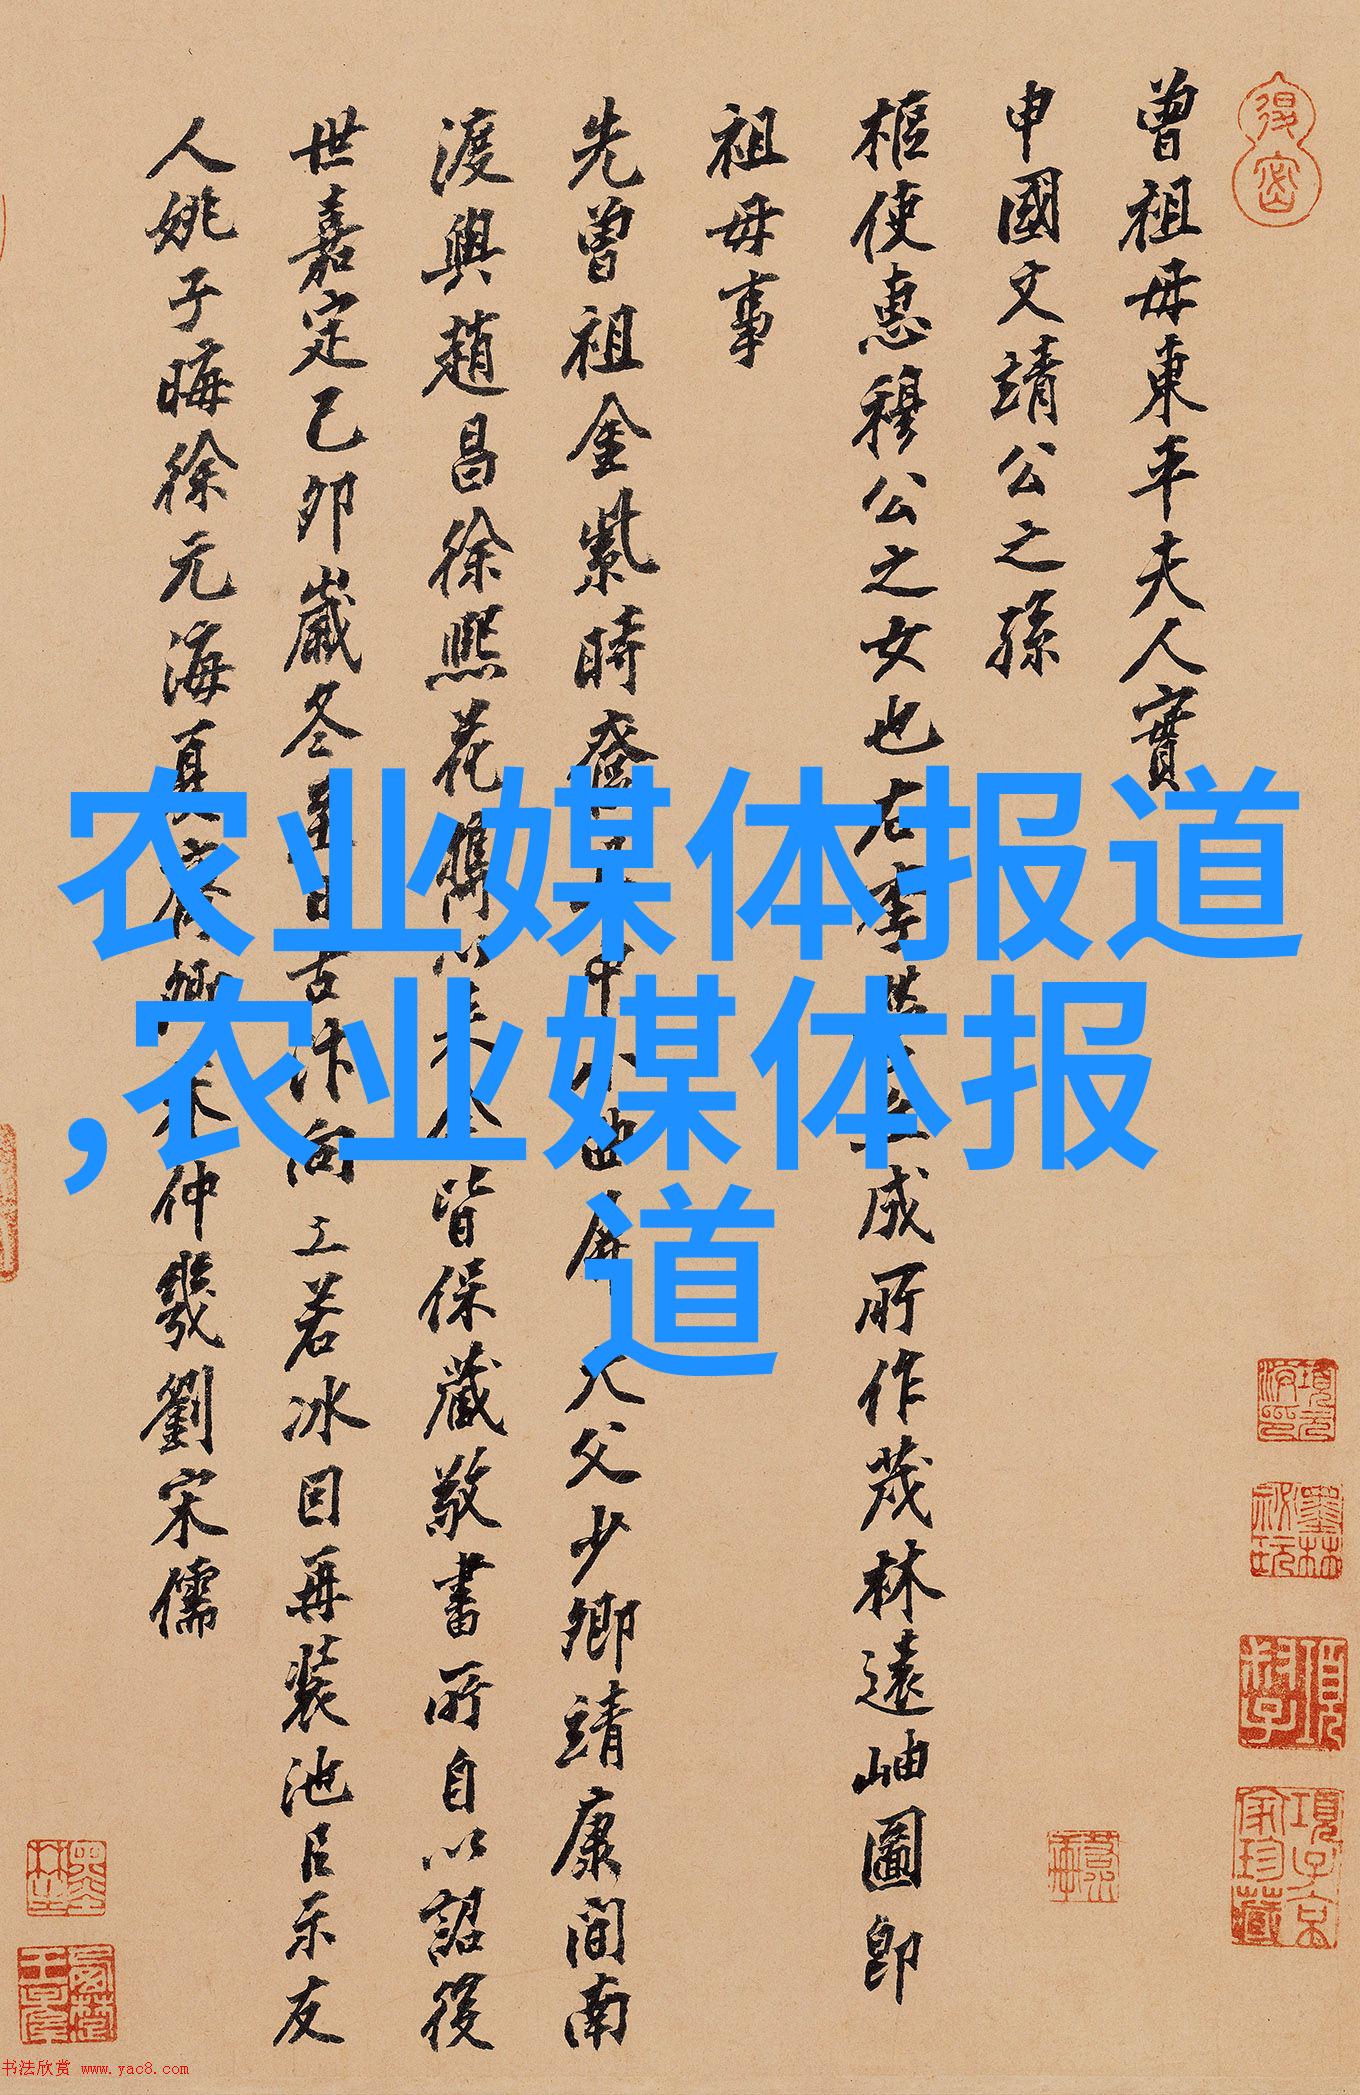 曾祖母東平夫人實
申國文靖公之孫
樞使惠穆公之女也右李成所作茂林遠岫圖即
祖母事
先曾祖金紫時奩中大父少卿靖康間南
渡與趙昌徐熙花雋皆保藏敬書所自以詔後
世嘉定己卯歲冬至日古汴向工若冰因再裝池呂示友
人姚子晦徐元海夏仲幾劉宋儒
農业媒体报道
,农业媒体报
道
书法欣赏 www.yac8.com